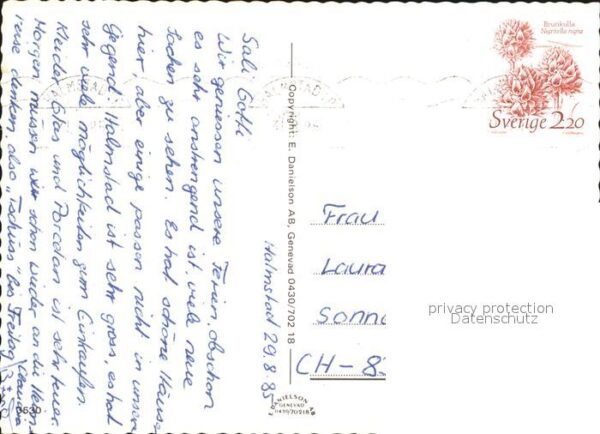 Sali Gotti
Wir geniessen unsere Ferien, obschon
es sehr anstrengend ist, viele neue
Sachen zu sehen. Es hat schöne Häuse
hier, aber einige passen nicht in unsere
Gegend. Halmstad ist sehr gross, es hat
sehr viele möglichkeiten zum Einkaufen.
Kleider, Glas und Porzelan ist sehr teuer.
Morgen müssen wir schon wieder an die Heim
reise denken, also "Tschüss" bis Freitag
Claudia
3630
Copyright: E. Danielson AB, Genevad 0430/702 18
Halmstad 29.8.85
Brunkulla
Nigritella nigra
Sverige 2.20
HALMSTAD
Frau
Laura
Sonna
CH-8
privacy protection
Datenschutz
DANIELSON AB
GENEVAD
0430/70218